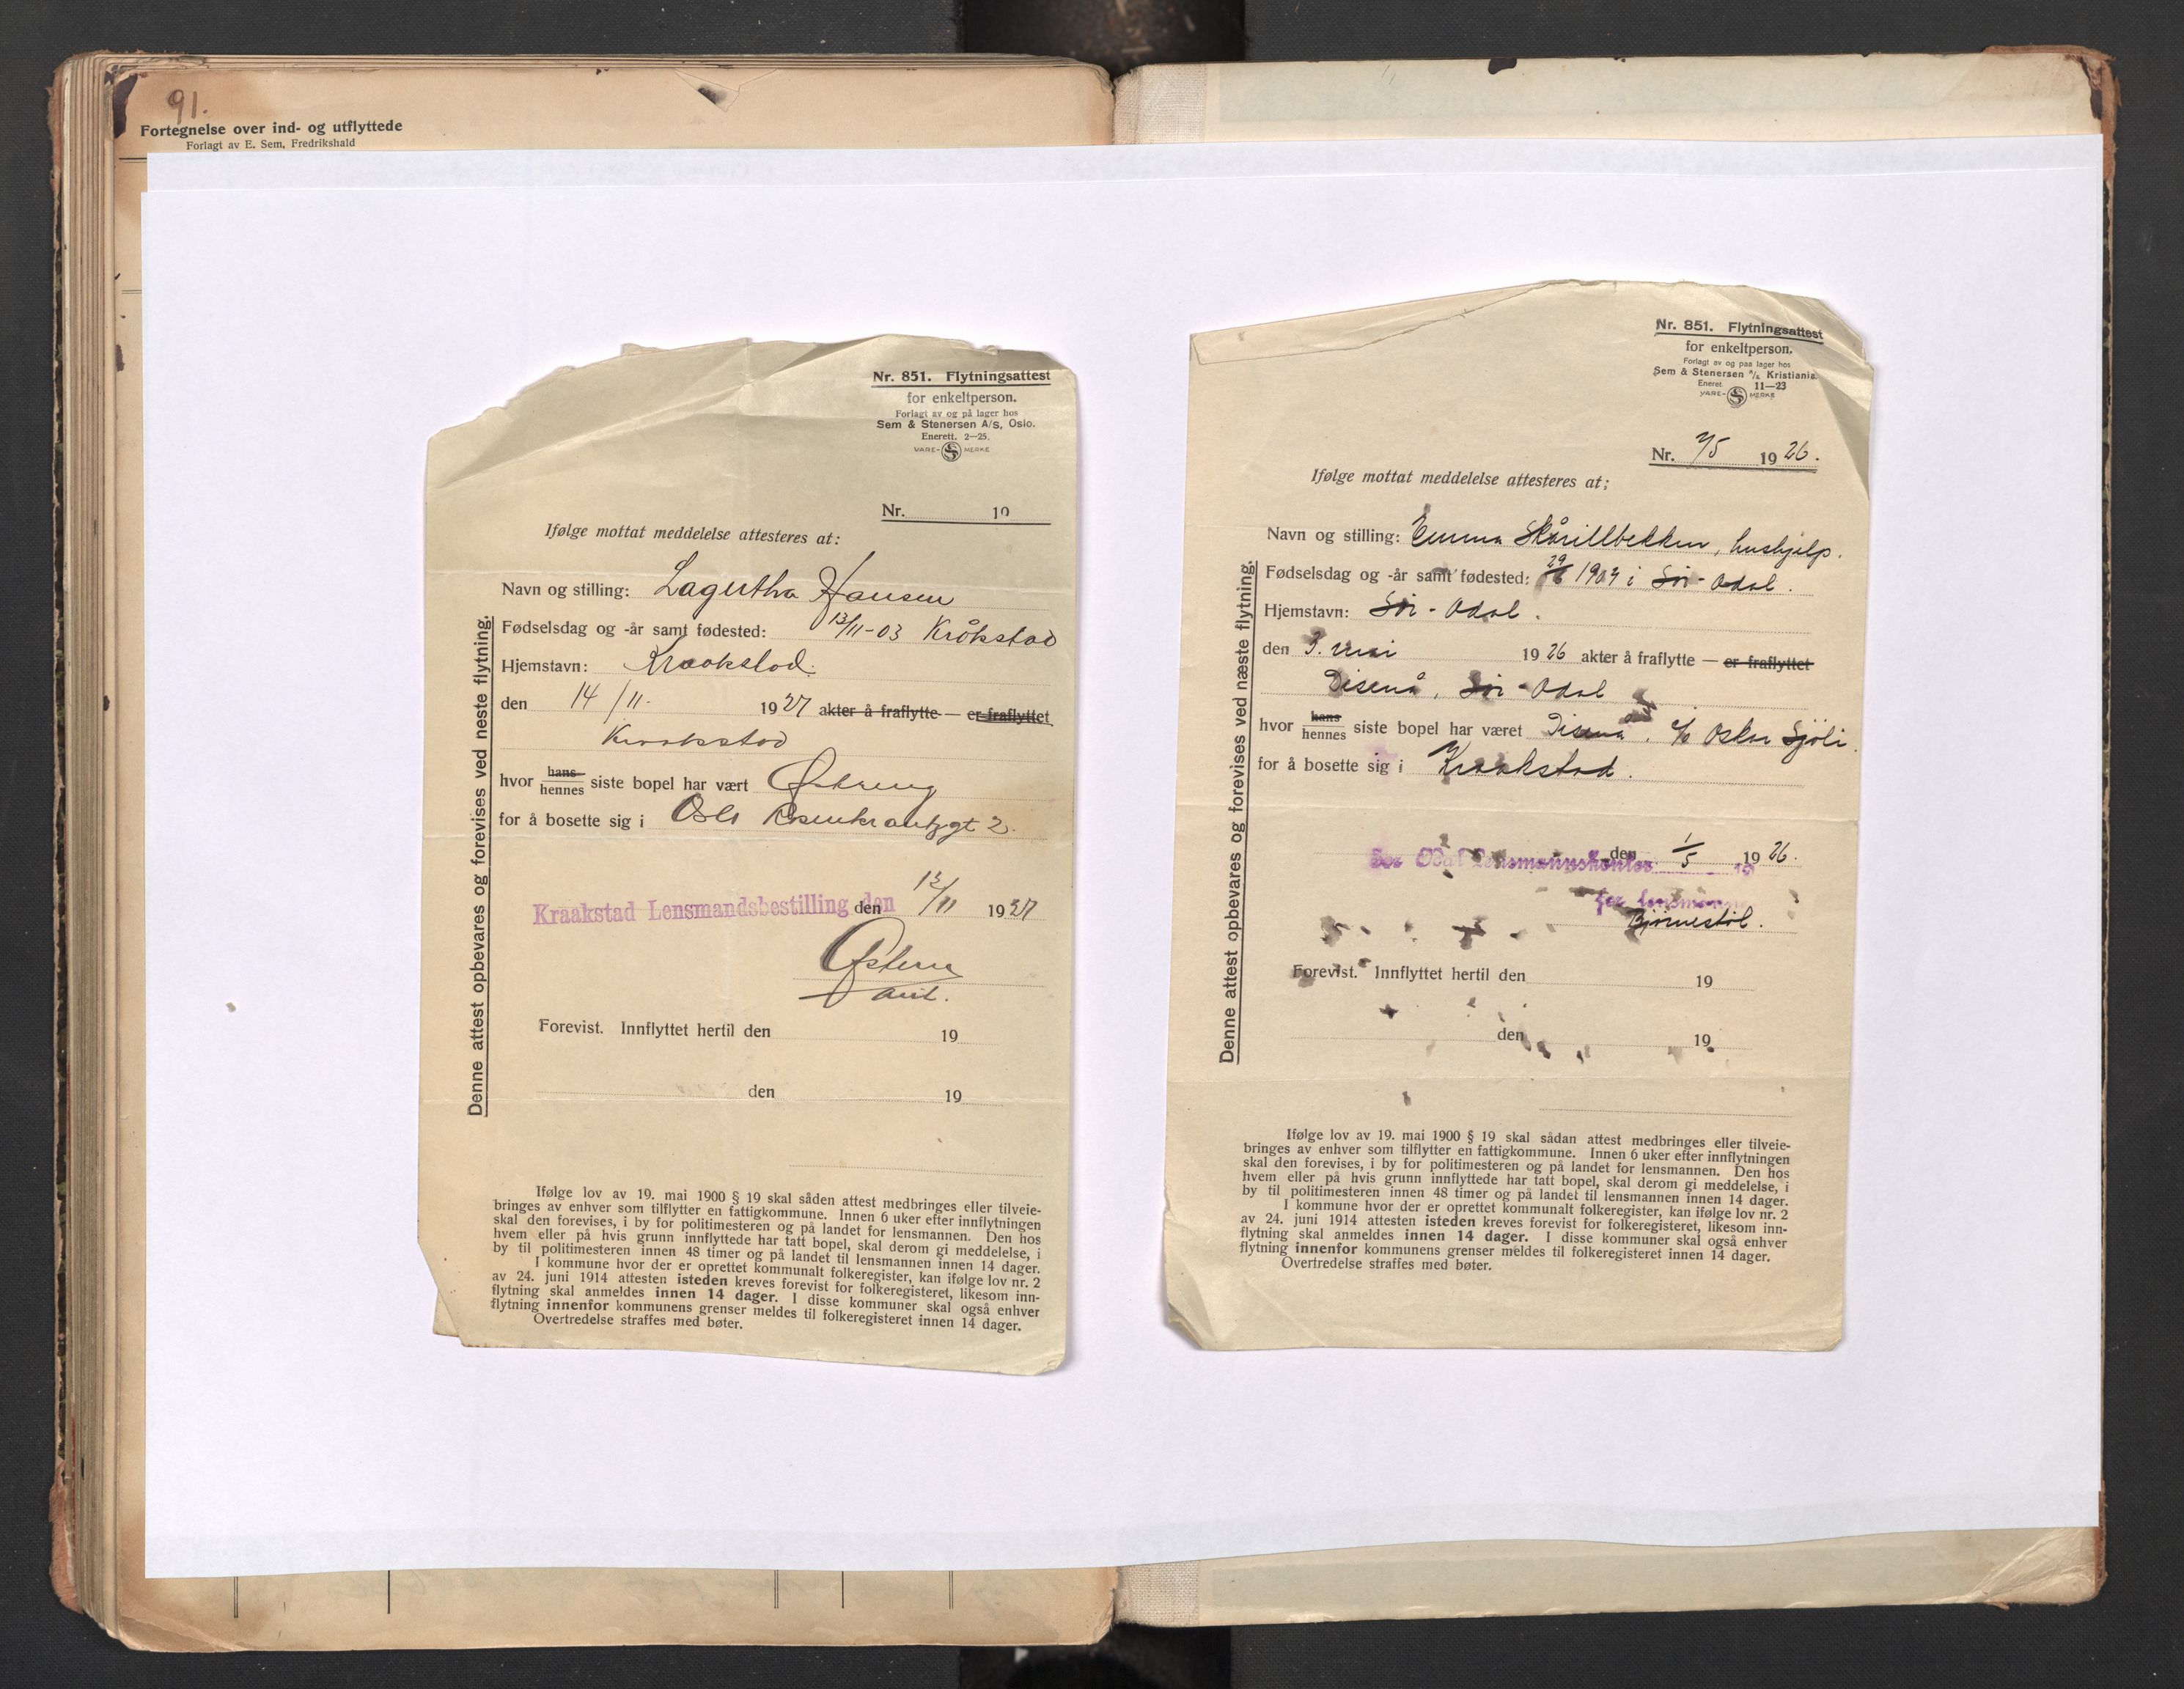 91.
Fortegnelse over ind- og utflyttede
Forlagt av E. Sem, Fredrikshald
Nr. 851. Flytningsattest
for enkeltperson.
Forlagt av og på lager hos
Sem & Stenersen A/S, Oslo.
Enerett. 2—25.
VARE- MERKE
Nr. 19
Ifølge mottat meddelelse attesteres at:
Navn og stilling: Lagertha Hansen
Fødselsdag og -år samt fødested: 13/11-03 Kråkstad
Hjemstavn: Kraakstad.
den 14/11. 1927 akter å fraflytte — er fraflyttet
Kraakstad
hvor hans hennes siste bopel har vært Østreng
for å bosette sig i Oslo Rosenkrantzgt 2.
Kraakstad Lensmandsbestilling den den 12/11 1927
Østern
Forevist. Innflyttet hertil den 19
den 19
Denne attest opbevares og forevises ved neste flytning.
Ifølge lov av 19. mai 1900 § 19 skal såden attest medbringes eller tilveie-
bringes av enhver som tilflytter en fattigkommune. Innen 6 uker efter innflytningen
skal den forevises, i by for politimesteren og på landet for lensmannen. Den hos
hvem eller på hvis grunn innflyttede har tatt bopel, skal derom gi meddelelse, i
by til politimesteren innen 48 timer og på landet til lensmannen innen 14 dager.
I kommune hvor der er oprettet kommunalt folkeregister, kan ifølge lov nr. 2
av 24. juni 1914 attesten isteden kreves forevist for folkeregisteret, likesom inn-
flytning skal anmeldes innen 14 dager. I disse kommuner skal også enhver
flytning innenfor kommunens grenser meldes til folkeregisteret innen 14 dager.
Overtredelse straffes med bøter.
Nr. 851. Flytningsattest
for enkeltperson.
Forlagt av og paa lager hos
Sem & Stenersen A/S Kristiania
Eneret. 11—23
VARE- MERKE
Nr. 7/5 1926.
Ifølge mottat meddelelse attesteres at:
Navn og stilling: Emma Skårillbekken, hushjelp.
Fødselsdag og -år samt fødested: 29/ 1904 i Sør-Odal.
Hjemstavn: Sør-Odal.
den 3. mai 1926 akter å fraflytte — er fraflyttet
Disenå, Sør-Odal
hvor hans hennes siste bopel har været Disenå, c/o Oskar Sjöli.
for å bosette sig i Kraakstad.
Sør Odal Lensmannskontor den 1/5 1926. 19
for lensmannen
Bjørnestøl.
Forevist. Innflyttet hertil den 19
den 19
Denne attest opbevares og forevises ved næste flytning.
Ifølge lov av 19. mai 1900 § 19 skal sådan attest medbringes eller tilveie-
bringes av enhver som tilflytter en fattigkommune. Innen 6 uker efter innflytningen
skal den forevises, i by for politimesteren og på landet for lensmannen. Den hos
hvem eller på hvis grunn innflyttede har tatt bopel, skal derom gi meddelelse, i
by til politimesteren innen 48 timer og på landet til lensmannen innen 14 dager.
I kommune hvor der er oprettet kommunalt folkeregister, kan ifølge lov nr. 2
av 24. juni 1914 attesten isteden kreves forevist for folkeregisteret, likesom inn-
flytning skal anmeldes innen 14 dager. I disse kommuner skal også enhver
flytning innenfor kommunens grenser meldes til folkeregisteret innen 14 dager.
Overtredelse straffes med bøter.